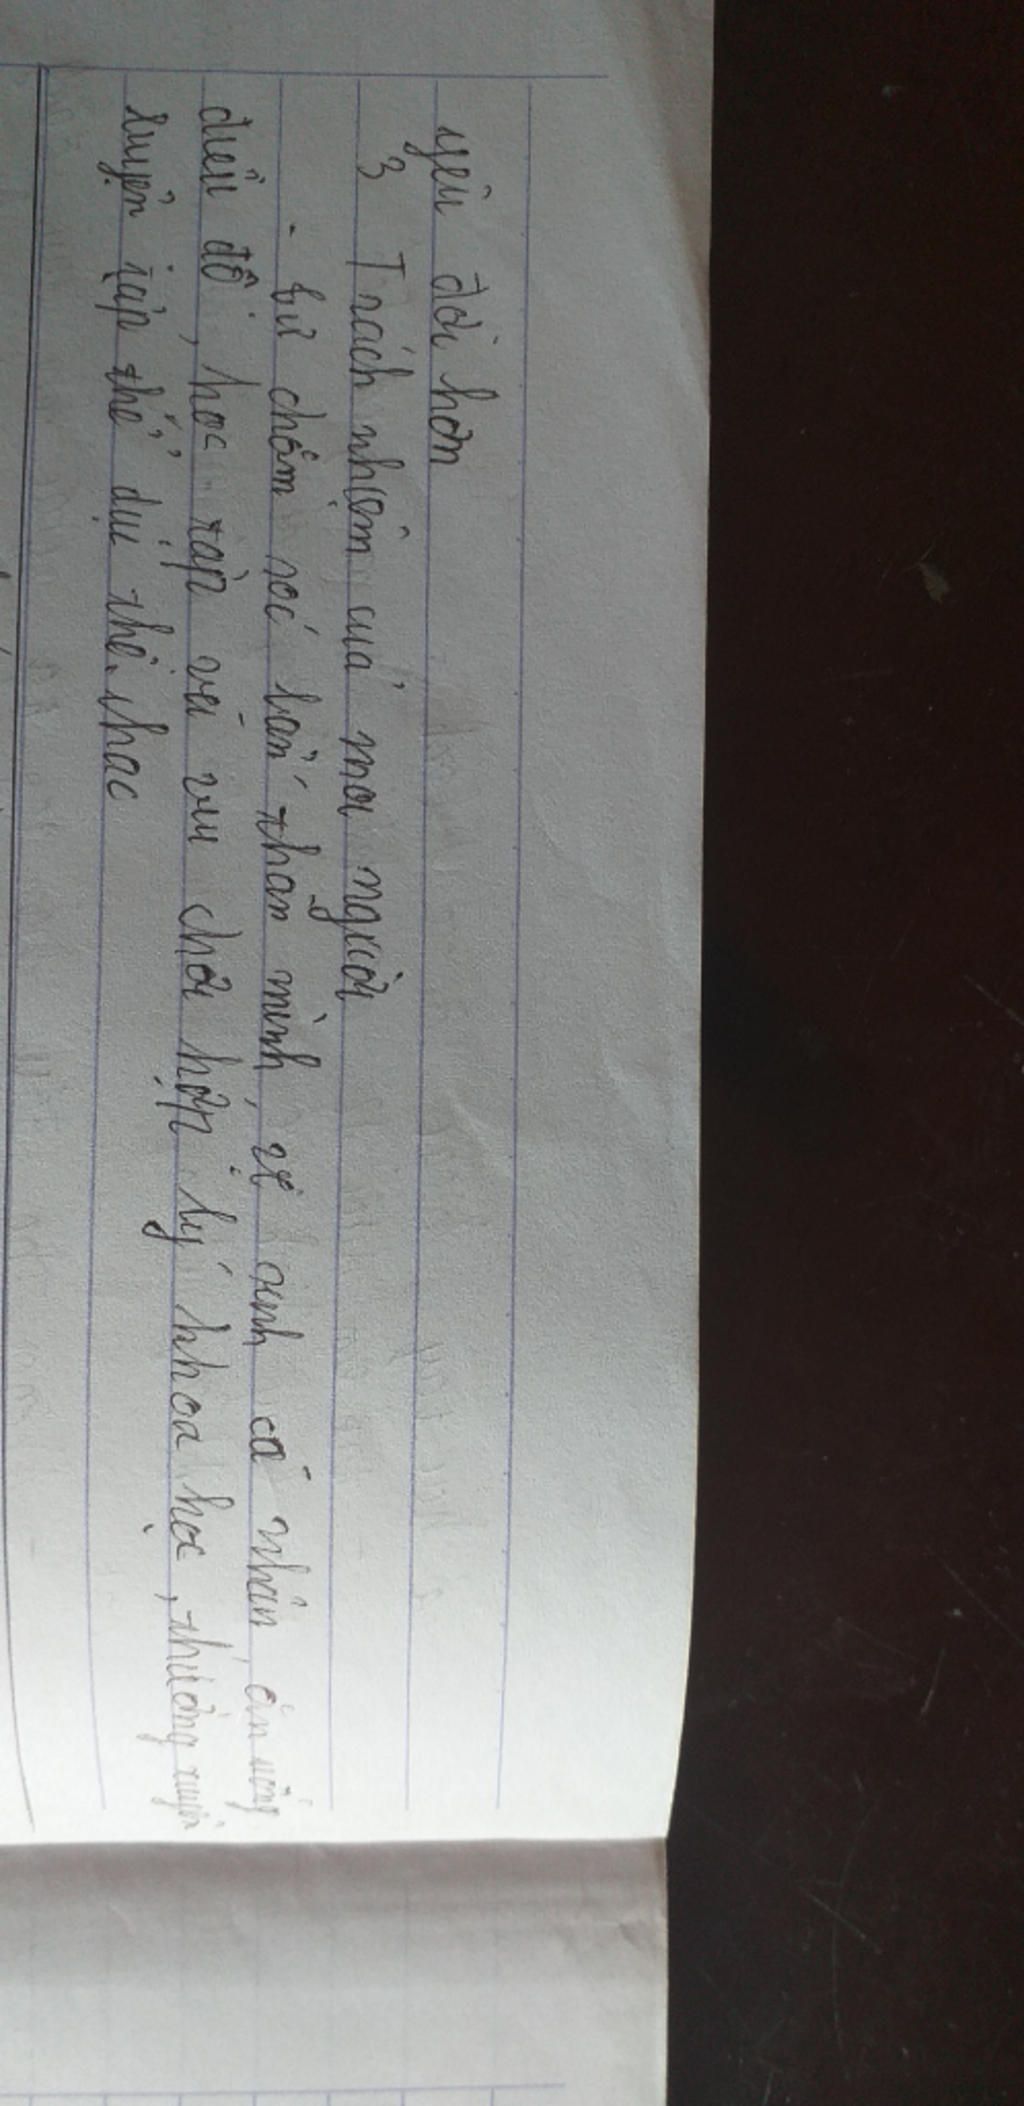 yêu đời hơn
3 Trách nhiệm của mọi người
- tự chăm sóc bản thân mình, vệ sinh cá nhân, ăn uống
điều độ, học tập và vui chơi hợp lý khoa học, thường xuyên
luyện tập thể dục thể thao